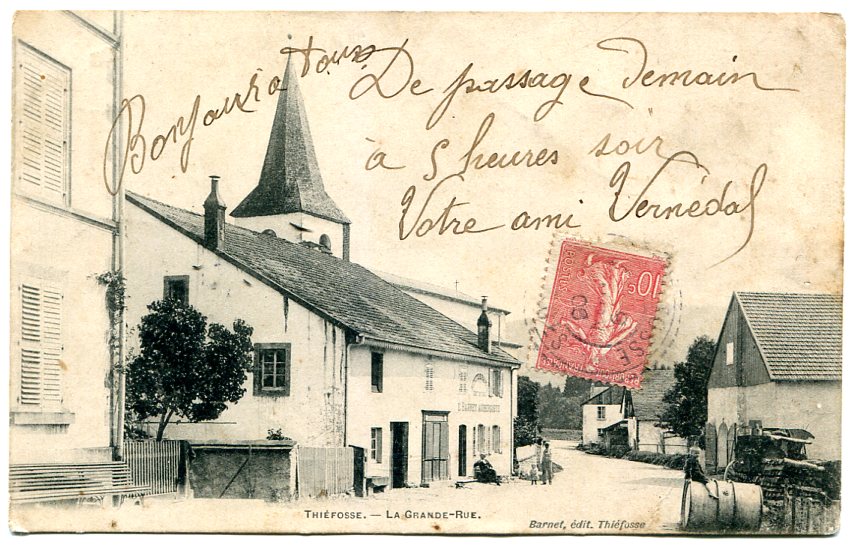 Bonjour à tous De passage demain
à 5 heures soir
Votre ami Vernédal
10c
POSTES
E. BARNET AUBERGISTE
THIÉFOSSE. — LA GRANDE-RUE.
Barnet, édit. Thiéfosse